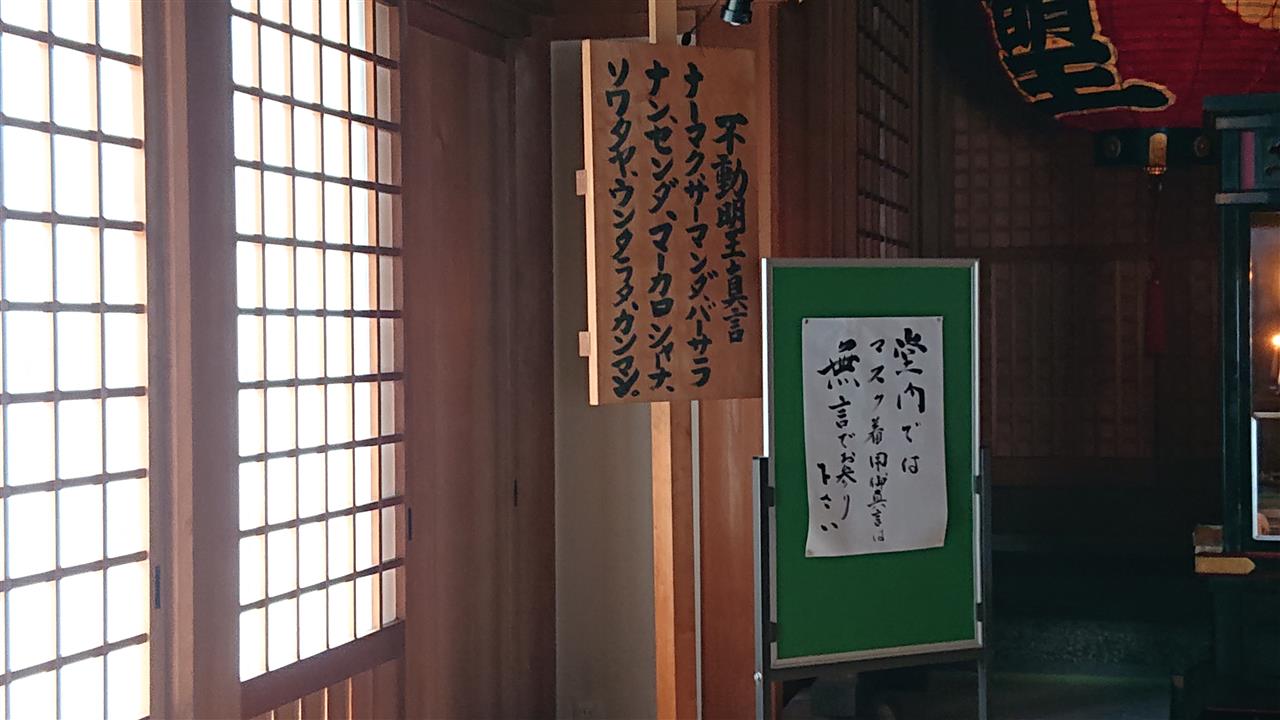 不動明王真言
ナーマク、サーマンダ、バーサラ
ナン、センダ、マーカロシャーナ、
ソワタヤ、ウンタラタ、カンマン。
堂内では
マスク着用御真言は
無言でお参り
下さい
明王